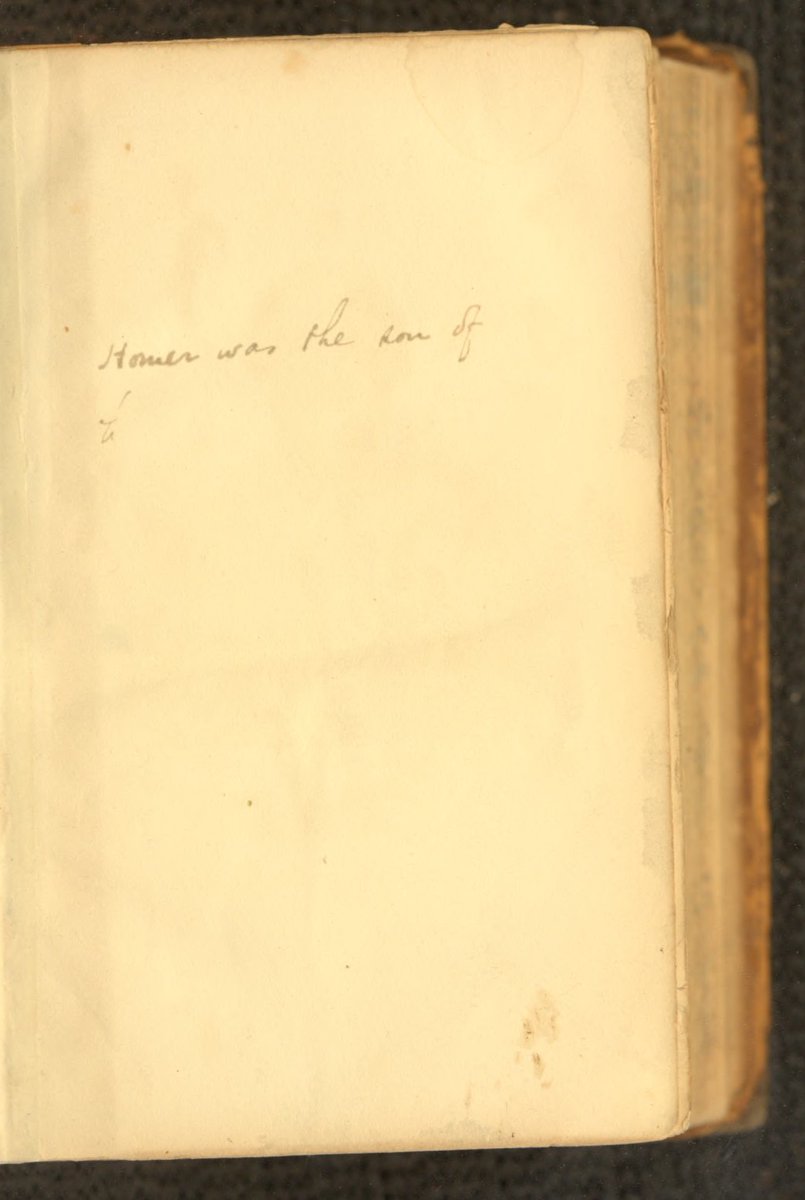 Homer was the son of